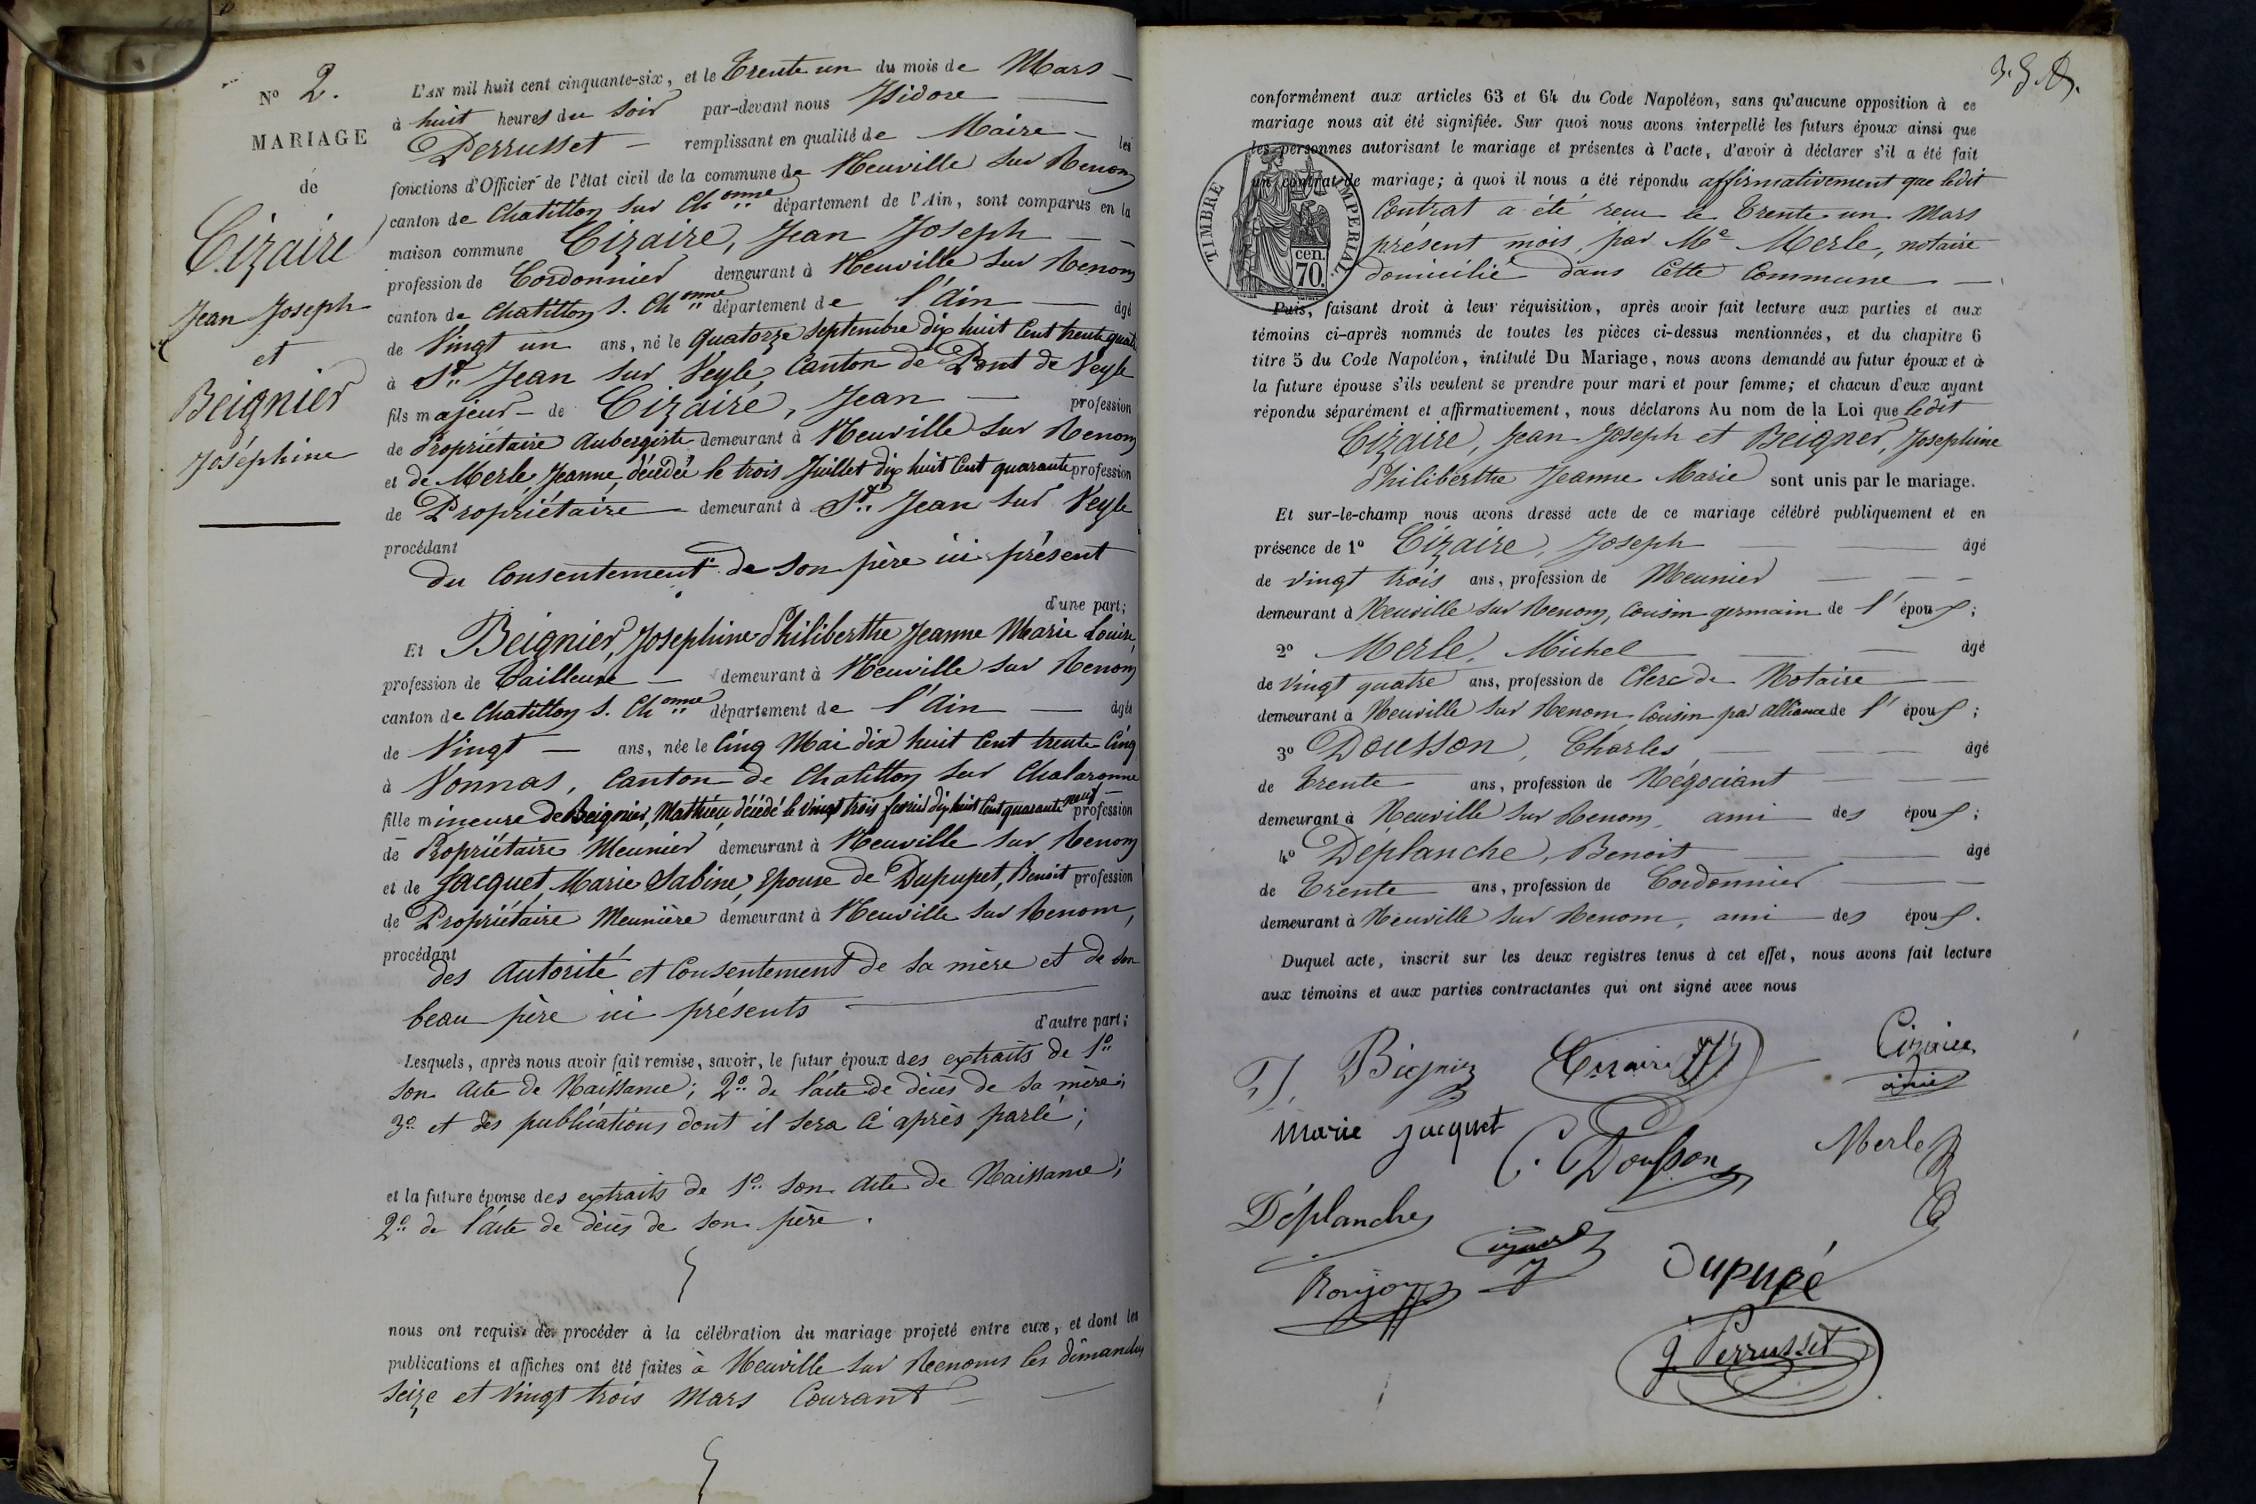 N° 2.
MARIAGE
de
Cizaire
Jean Joseph
et
Beignier
Joséphine
L'AN mil huit cent cinquante-six, et le Trente un du mois de Mars —
à huit heures du soir par-devant nous Isidore —
Perrusset — remplissant en qualité de Maire — les
fonctions d'Officier de l'état civil de la commune de Neuville sur Renom
canton de Chatillon sur Ch onne département de l'Ain, sont comparus en la
maison commune Cizaire, Jean Joseph —
profession de Cordonnier demeurant à Neuville sur Renom
canton de Chatillon s. Ch onne département de l'Ain — âgé
de Vingt un ans, né le quatorze septembre dix huit cent trente quatre
à St. Jean sur Veyle, Canton de Pont de Veyle
fils majeur — de Cizaire, Jean — profession
de Propriétaire Aubergiste demeurant à Neuville sur Renom
et de Merle, Jeanne, décédée le trois Juillet dix huit cent quarante profession
de Propriétaire — demeurant à St. Jean sur Veyle
procédant
du Consentement de son père ici présent
d'une part;
Et Beignier, Josephine Philiberthe Jeanne Marie Louise,
profession de Tailleuse — demeurant à Neuville sur Renom
canton de Chatillon s. Ch onne département de l'Ain — âgée
de Vingt — ans, née le Cinq Mai dix huit cent trente Cinq
à Vonnas, Canton de Chatillon sur Chalaronne
fille mineure de Beignier, Mathieu, décédé le vingt trois février dix huit cent quarante neuf profession
de Propriétaire Meunier demeurant à Neuville sur Renom
et de Jacquet, Marie Sabine, Epouse de Dupupet, Benoit profession
de Propriétaire Meunière demeurant à Neuville sur Renom,
procédant
des Autorité et Consentement de sa mère et de son
beau père ici présents —
d'autre part;
Lesquels, après nous avoir fait remise, savoir, le futur époux des extraits de 1°
son acte de Naissance; 2° de l'acte de décès de sa mère;
3° et des publications dont il sera ci après parlé;
et la future épouse des extraits de 1° son acte de Naissance;
2° de l'acte de décès de son père.
nous ont requis de procéder à la célébration du mariage projeté entre eux, et dont les
publications et affiches ont été faites à Neuville sur Renoms les dimanches
seize et vingt trois Mars Courant —
conformément aux articles 63 et 64 du Code Napoléon, sans qu'aucune opposition à ce
mariage nous ait été signifiée. Sur quoi nous avons interpellé les futurs époux ainsi que
les personnes autorisant le mariage et présentes à l'acte, d'avoir à déclarer s'il a été fait
un contrat de mariage; à quoi il nous a été répondu affirmativement que ledit
Contrat a été reçu le Trente un Mars
présent mois, par Me Merle, notaire
domicilié dans cette Commune —
TIMBRE IMPERIAL
cen.
70.
Puis, faisant droit à leur réquisition, après avoir fait lecture aux parties et aux
témoins ci-après nommés de toutes les pièces ci-dessus mentionnées, et du chapitre 6
titre 5 du Code Napoléon, intitulé Du Mariage, nous avons demandé au futur époux et à
la future épouse s'ils veulent se prendre pour mari et pour femme; et chacun d'eux ayant
répondu séparément et affirmativement, nous déclarons Au nom de la Loi que ledit
Cizaire, Jean Joseph et Beigner, Josephine
Philiberthe Jeanne Marie sont unis par le mariage.
Et sur-le-champ nous avons dressé acte de ce mariage célébré publiquement et en
présence de 1° Cizaire, Joseph — âgé
de vingt trois ans, profession de Meunier —
demeurant à Neuville sur Renom, Cousin germain de l' époux;
2° Merle, Michel — âgé
de vingt quatre ans, profession de Clerc de Notaire —
demeurant à Neuville sur Renom Cousin par Alliance de l' époux;
3° Dousson, Charles, — âgé
de Trente — ans, profession de Négociant —
demeurant à Neuville sur Renom, ami des époux;
4° Déplanche, Benoit — âgé
de Trente — ans, profession de Cordonnier —
demeurant à Neuville sur Renom, ami — des époux.
Duquel acte, inscrit sur les deux registres tenus à cet effet, nous avons fait lecture
aux témoins et aux parties contractantes qui ont signé avec nous
J. Bignier Cizaire Cizaire
Marie Jacquet C. Dousson Merle
Déplanche
Dupupé
J Perrusset